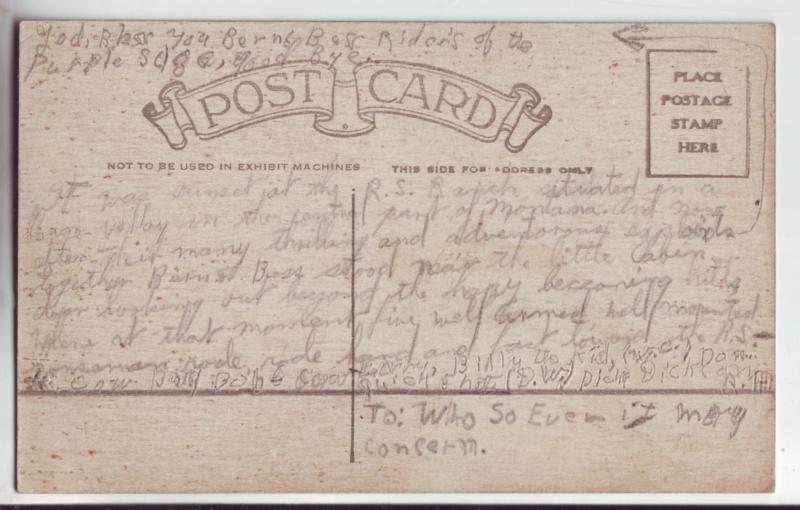 God, Bless You Berny Bess Rider's of the
Purple Sage, Good Bye.
POST CARD
PLACE
POSTAGE
STAMP
HERE
NOT TO BE USED IN EXHIBIT MACHINES
THIS SIDE FOR ADDRESS ONLY
It was sunset at the R.S. Ranch situated in a
large valley in the central part of Montana. and now
after their many thrilling and adventorous exploits
together Berny Bess stood near the little Cabin
door looking out beyond the happy beckoning hills
Where at that moment five well armed well mounted
horseman rode, rode hard and fast toward the R.S.
Cow Boy Bob Billy the Kid, Don
Quick Shot (D.W.) Dick
To: Who So Ever it May
Concern.